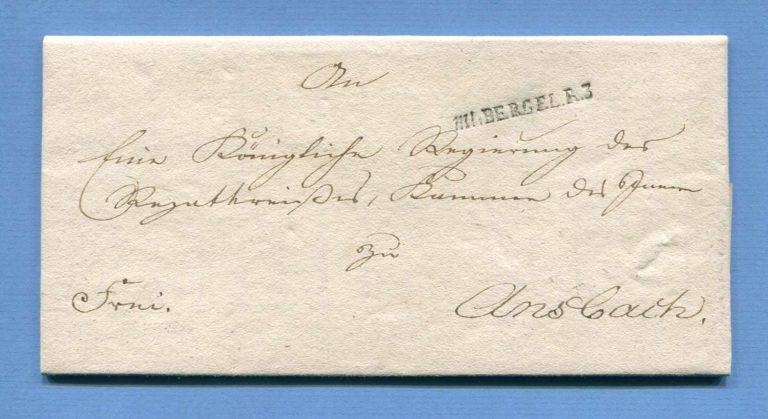 An
M. BERGEL. R.3
Eine Königliche Regierung des
Rezatkreißes, Kammer des Innern
zu
Frei.
Ansbach.